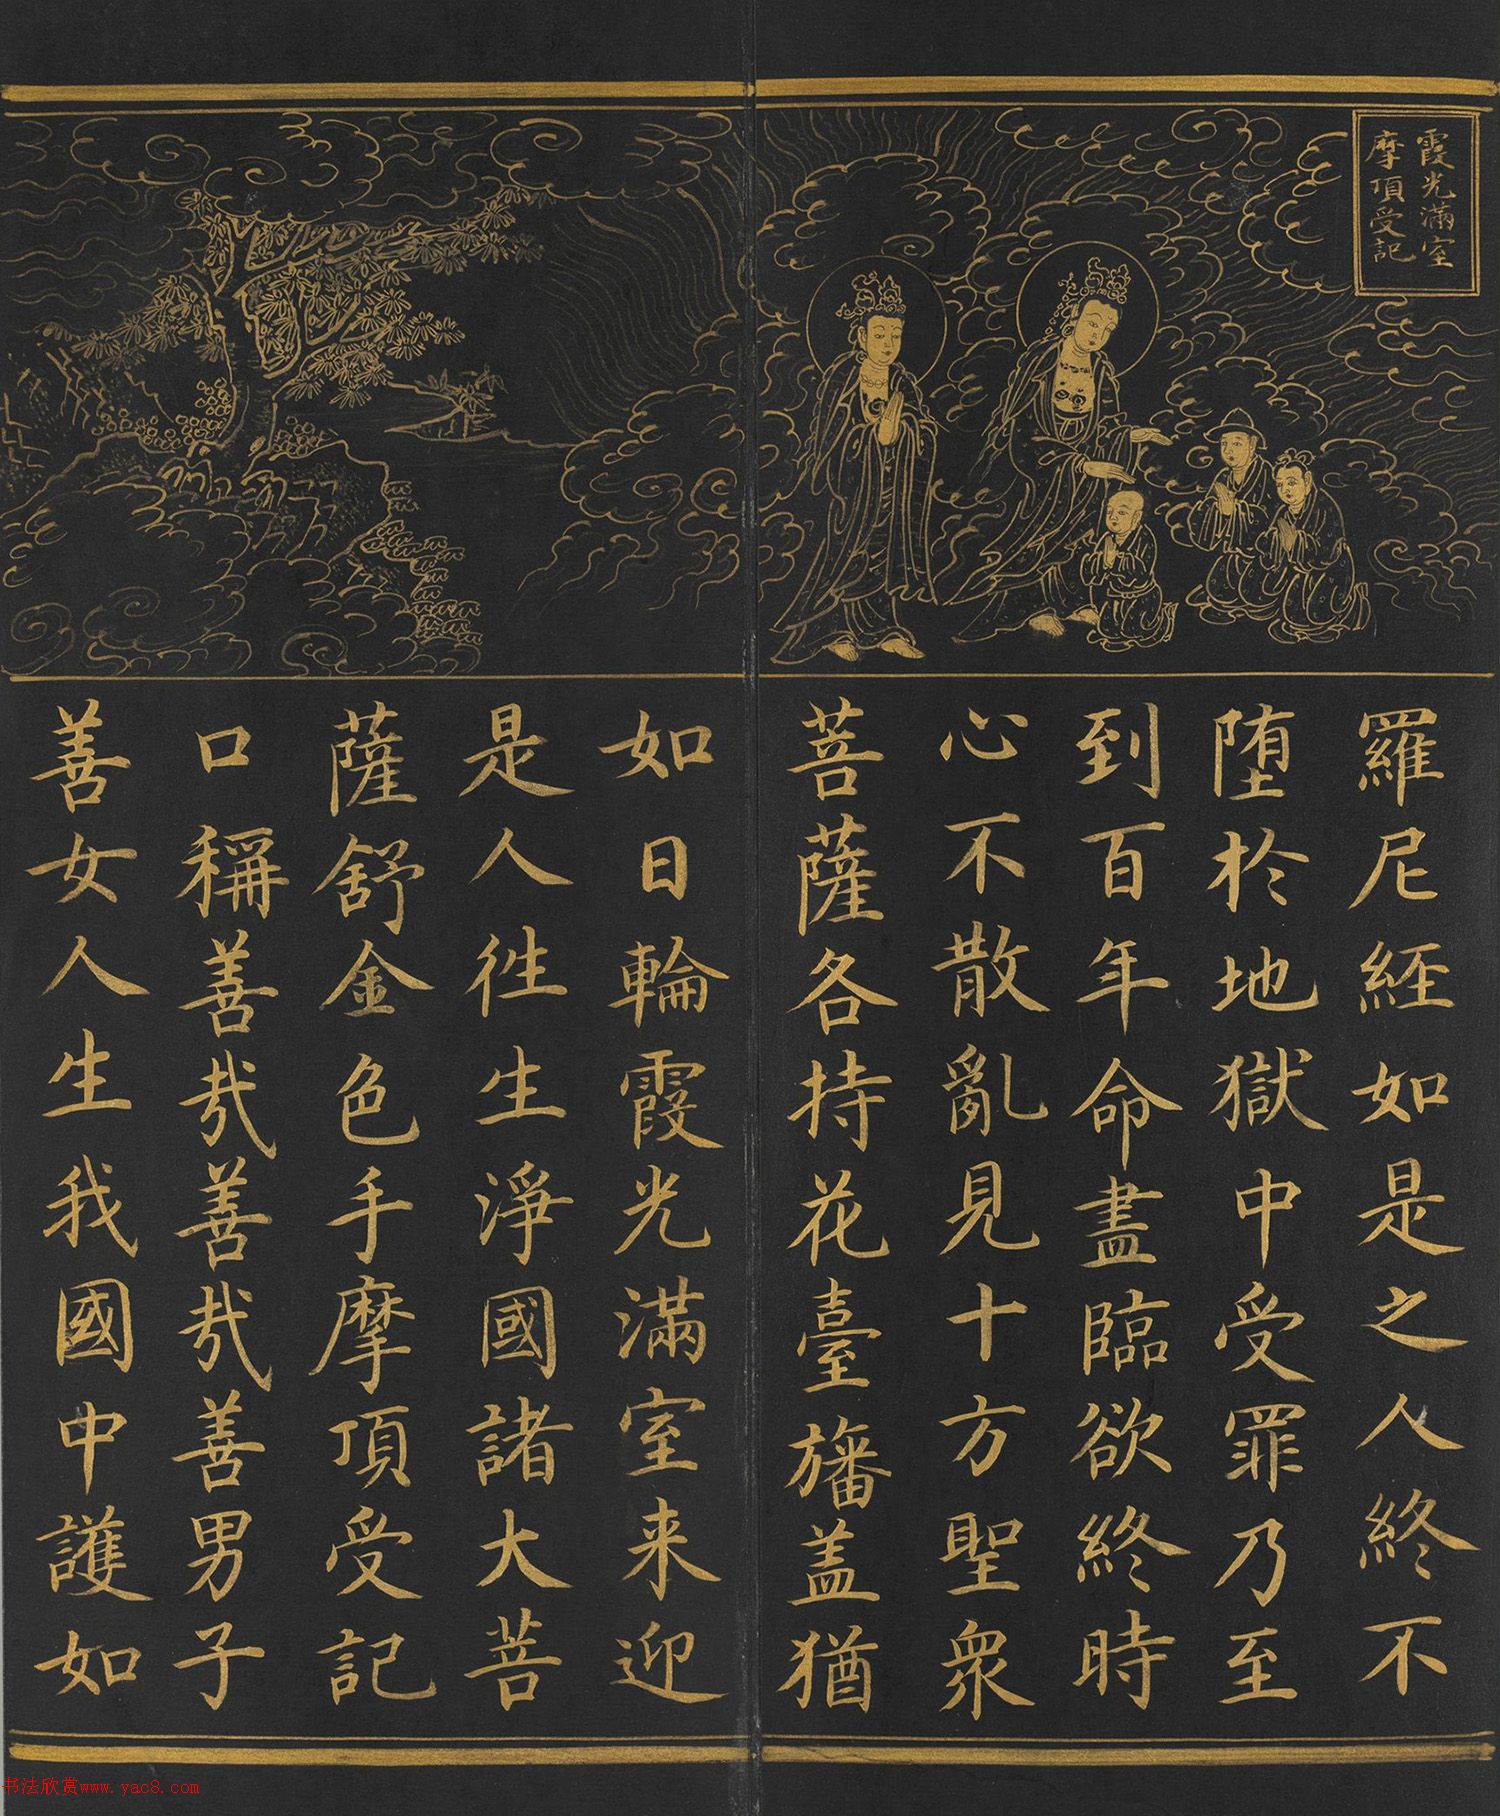 霞光滿室
摩頂受記
羅尼經如是之人終不
堕於地獄中受罪乃至
到百年命盡臨欲終時
心不散亂見十方聖衆
菩薩各持花臺旛盖猶
如日輪霞光滿室来迎
是人徃生淨國諸大菩
薩舒金色手摩頂受記
口稱善㢤善㢤善男子
善女人生我國中護如
书法欣赏www.yac8.com